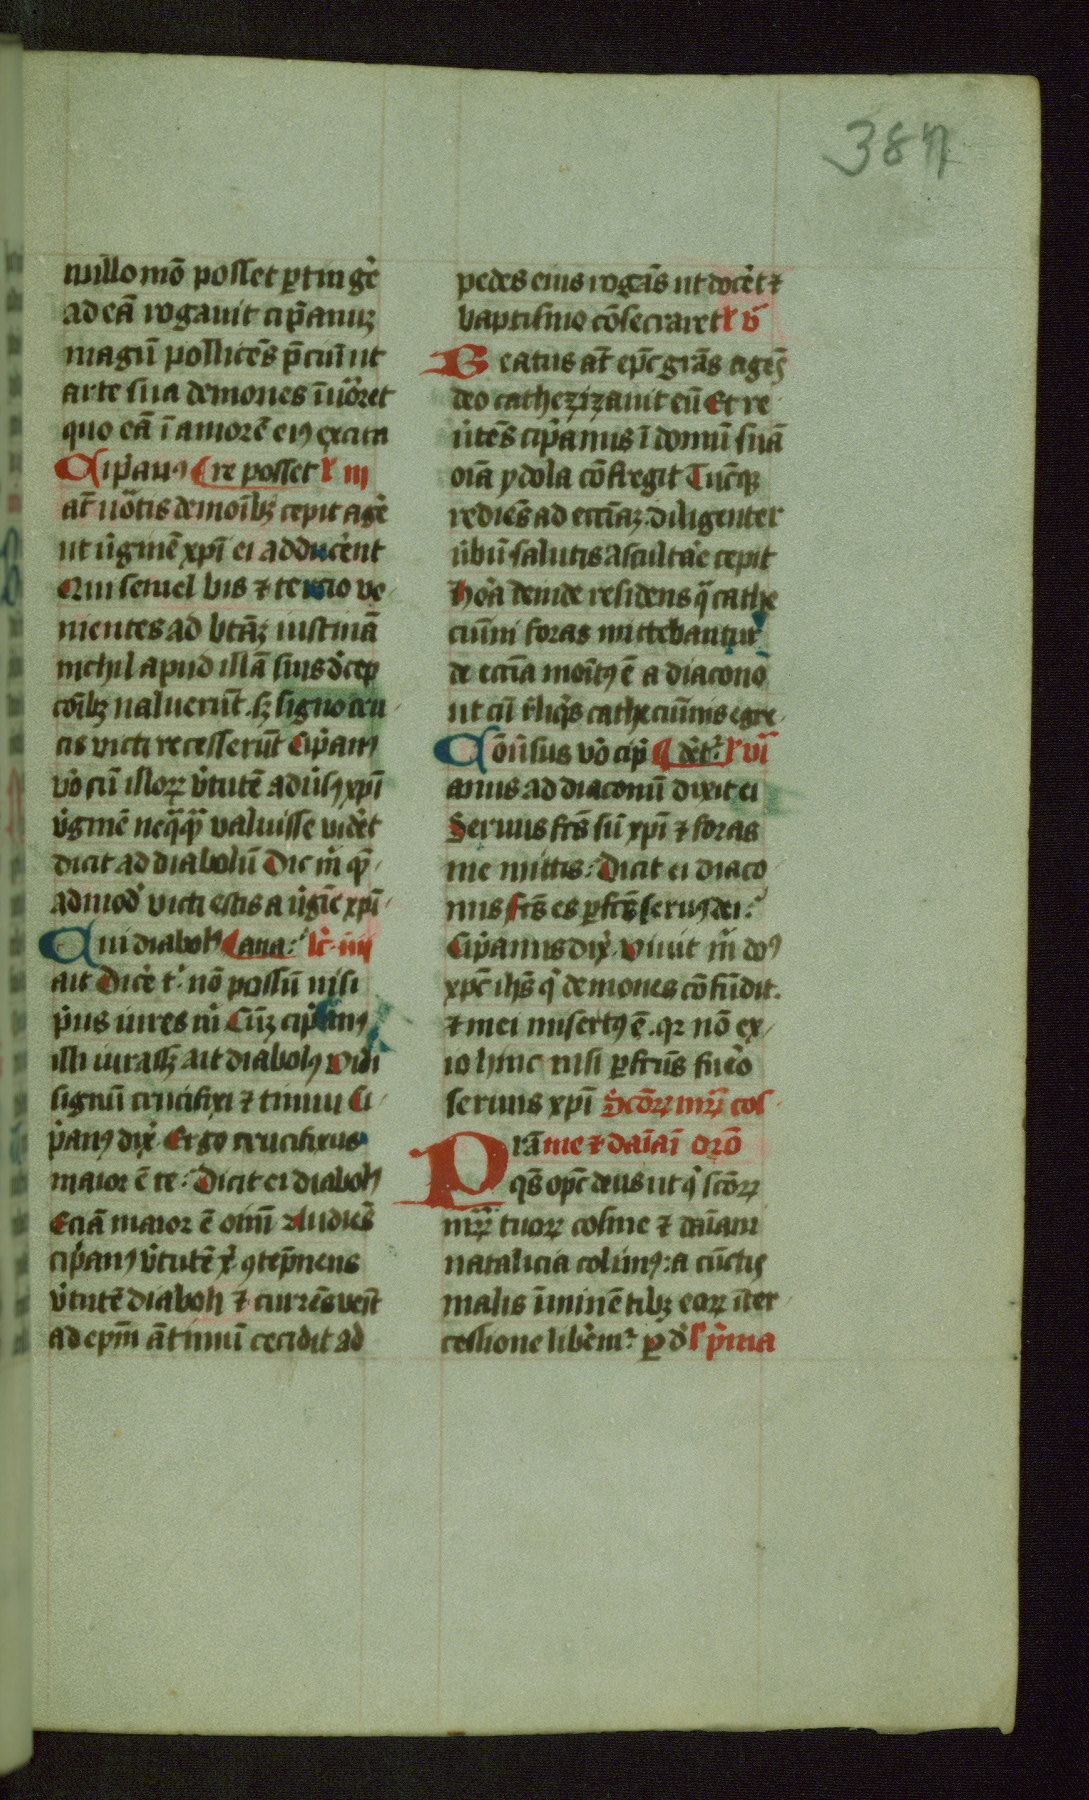 387
nullo mō posset ꝑtingẽ
ad eā rogauit cipͥanuꝫ
magū pollicēs p̄ciū ut
arte sua demones īuoͣret
quo eā ī amorē eiꝰ excita
Cipͥanꝰ ¶re posset l iii
at̄ uoͣtis demoībꝫ cepit agẽ
ut uͥginē xpī ei adducẽnt
Qui semel bis ⁊ tercio ve
nientes ad btāꝫ iustinā
nichil apud illā suis dͨcep
coībꝫ ualuerūt. sꝫ signo cru
cis victi recesserūt Cipͥanꝰ
vͦo cū illoꝝ vͥtutē aduͥsꝰ xpī
vͥginē neqͣqͣ valuisse vidẽt
dicit ad diabolū Dic mͥ qͣ
admodͫ victi estis a uͥgīe xpī
Cui diabolꝰ ¶ana: lc̄ iiii
ait Dicẽ tͥ nō possū nisi
pͥus iures mͥ Cūꝫ cipͥanꝰ
illi iurassꝫ ait diabolꝰ vidi
signū crucifixi ⁊ timui Ci
pͥanꝰ dix̄ Ergo crucifixus
maior ē te: Dicit ei diabolꝰ
Eciā maior ē omī Audiēs
cipͥanꝰ vͥtutē xͥ ꝯtēpnens
vͥtutē diaboli ⁊ currēs veīt
ad epm̄ āt'imū cecidit ad
pedes eius rogās ut docẽt ⁊
baptismo cōsecraret l v̄
Beatus at̄ epc̄ grās agēs
deo cathezizauit eū Et re
uͥtēs cipͥanus ī domū suā
oīa ydola cōfregit Tūcqꝫ
rediēs ad eccīaꝫ diligenter
uͥbū salutis ascultaẽ cepit
Hoͣ deinde residens qͣ cathe
cumī foras mittebantur
de eccīa moītꝰ ē a diacono
ut cū rͤliqͥs cathecumīs egre
Cōuͥsus vͦo cipͥ ¶dẽtͬ: l vi
anus ad diaconū dixit ei
Seruus fcs̄ sū xpī ⁊ foras
me mittis: Dicit ei diaco
nus fcs̄ es ꝑfcs̄ seruꝰ dei:
Cipͥanus dix̄. viuit mͥ dn̄s
xpc̄ ihs̄ qͥ demones cōfudit.
⁊ mei misertꝰ ē. qꝛ nō ex
io hinc nisi ꝑfcūs fueͦo
seruus xpī Scōꝝ mrͫ cos
P rā me ⁊ daīaī orō
qs̄ opc̄ deus ut qͥ scōꝝ
mrͫ tuoꝝ cosme ⁊ daīani
natalicia colimꝰ: a cūctis
malis īminētibꝫ eoꝝ īter
cessione libẽmͬ ꝑ dͫ l pͥma